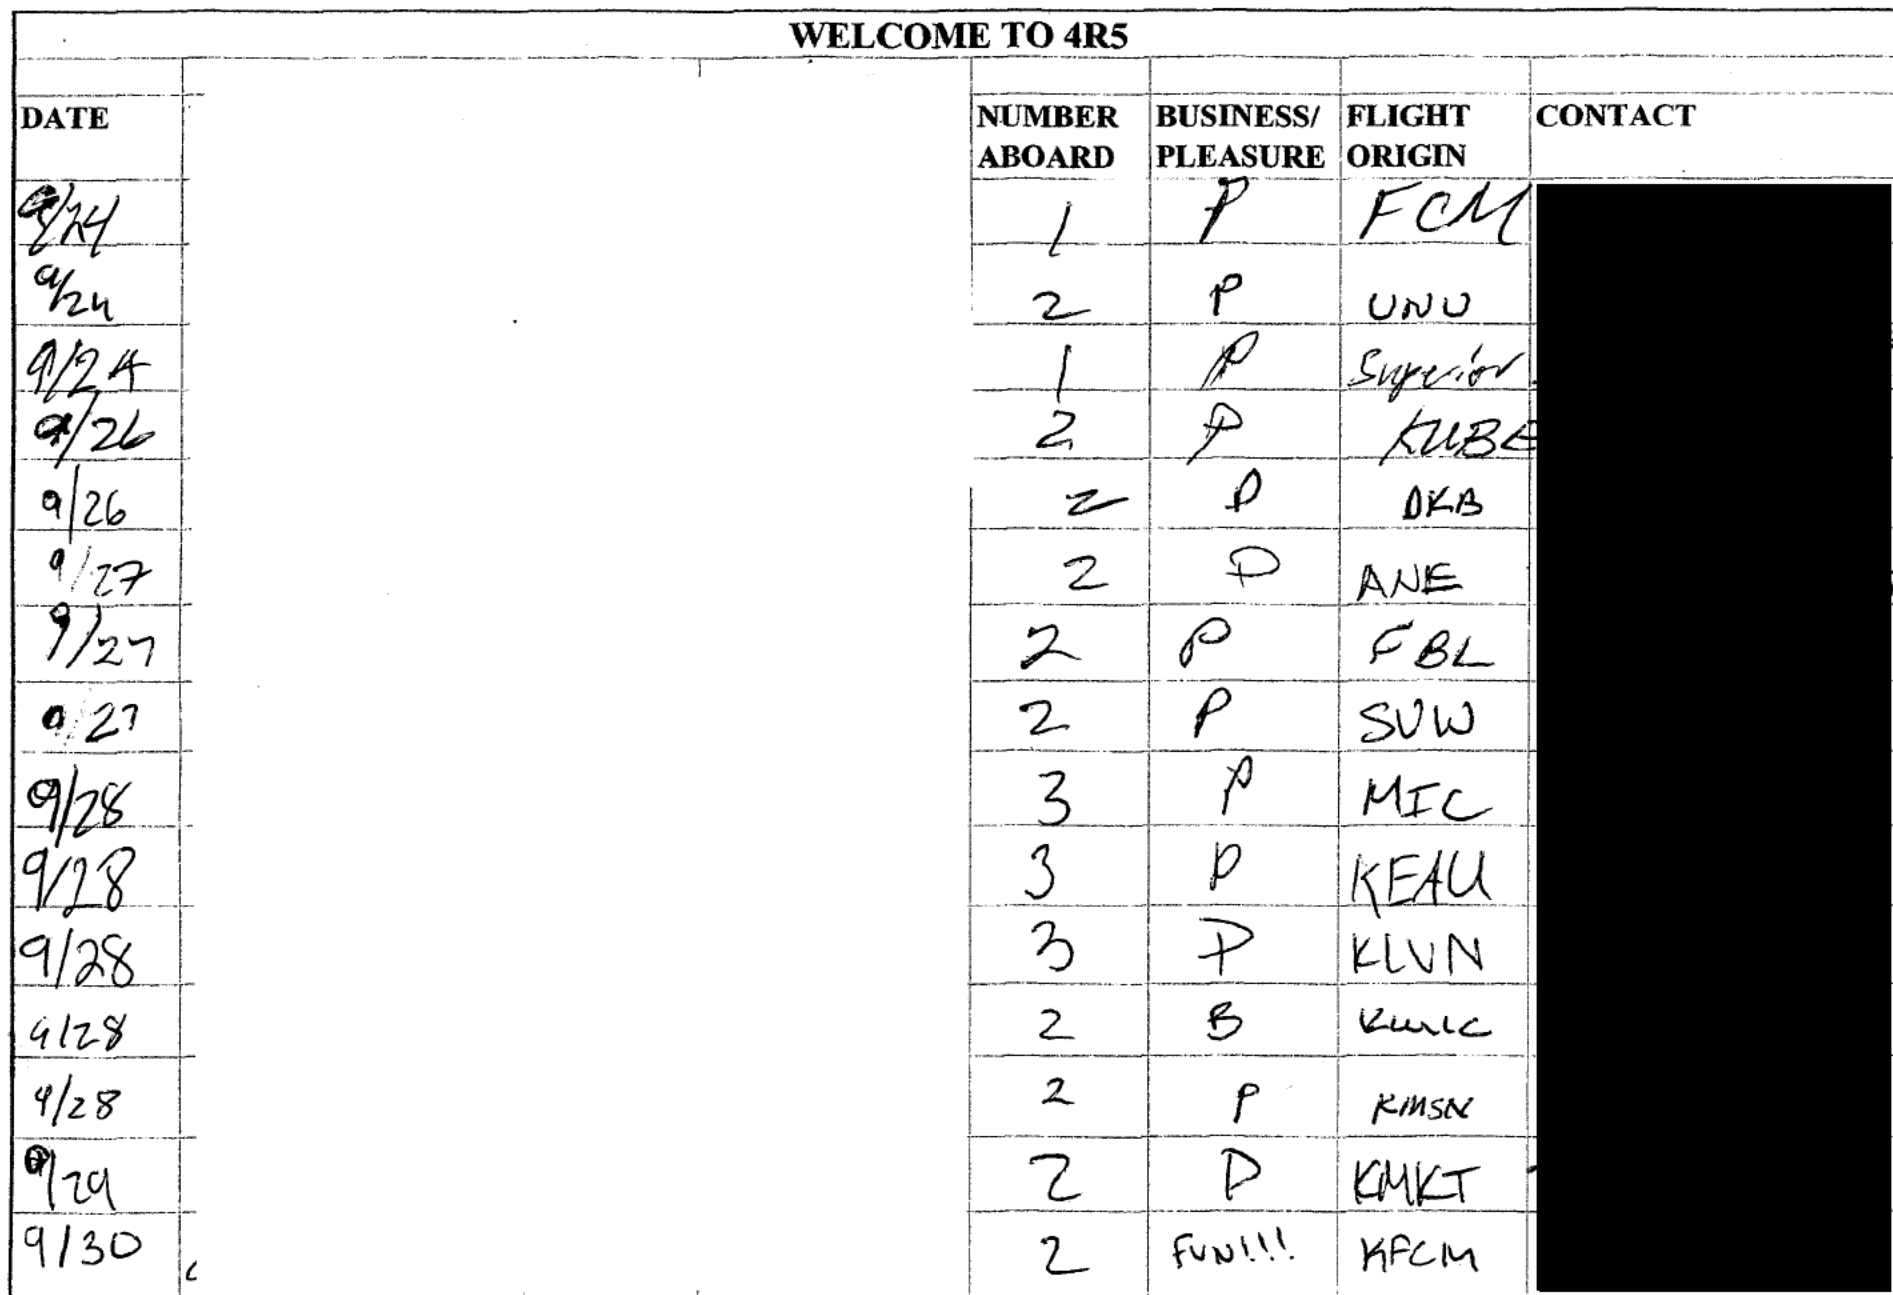 WELCOME TO 4R5
DATE NUMBER ABOARD BUSINESS/ PLEASURE FLIGHT ORIGIN CONTACT
9/24 1 P FCM
9/24 2 P UNU
9/24 1 P Superior
9/26 2 P KUBE
9/26 2 P DKB
9/27 2 P ANE
9/27 2 P FBL
9/27 2 P SUW
9/28 3 P MIC
9/28 3 P KEAU
9/28 3 P KLVN
9/28 2 B KMIC
9/28 2 P KMSN
9/29 2 P KMKT
9/30 2 FUN!!! KFCM